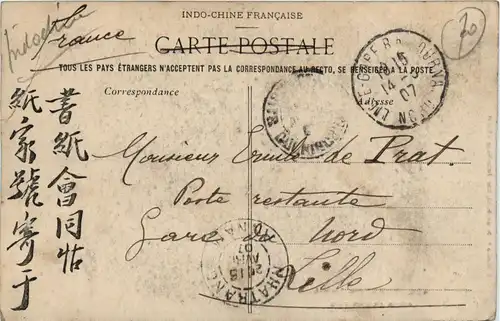 INDO-CHINE FRANÇAISE
Indochine
France
CARTE POSTALE
TOUS LES PAYS ÉTRANGERS N'ACCEPTENT PAS LA CORRESPONDANCE AU RECTO, SE RENSEIGNER A LA POSTE
Correspondance
Adresse
Monsieur Ernest de Prat.
Poste restante
Gare du Nord
Lille
書紙會同帖
紙家號寄于
15
14
07
NHATRANG
ANNAM
15
AVRIL
07
20